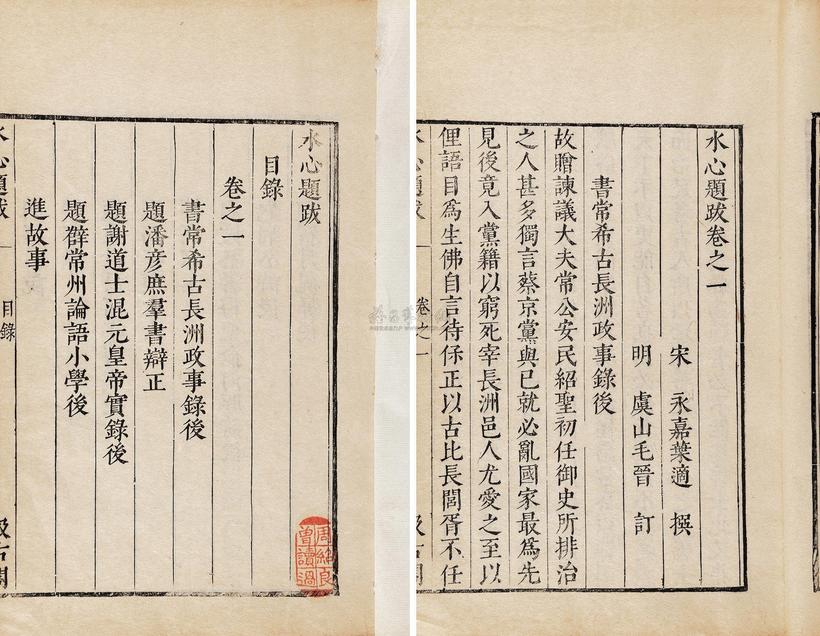 水心題跋卷之一
宋 永嘉葉適 撰
明 虞山毛晉 訂
書常希古長洲政事錄後
故贈諫議大夫常公安民紹聖初任御史所排治
之人甚多獨言蔡京黨與已就必亂國家最爲先
見後竟入黨籍以窮死宰長洲邑人尤愛之至以
俚語目爲生佛自言待伱正以古比長閭胥不任
水心題跋
卷之一
汲古閣
水心題跋
目錄
卷之一
書常希古長洲政事錄後
題潘彦庶羣書辯正
題謝道士混元皇帝實錄後
題薛常州論語小學後
進故事
水心題跋
目錄
汲古閣
周紹良
曾讀過